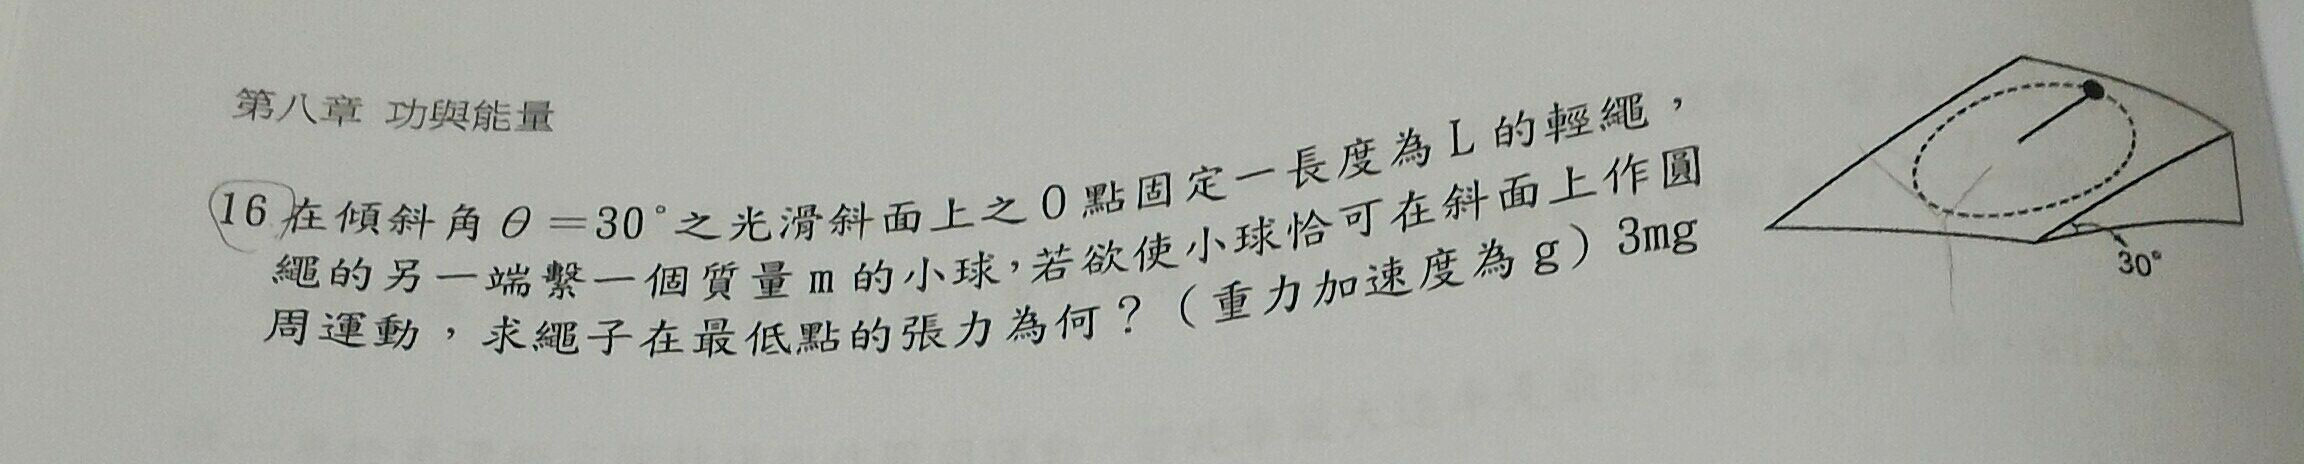 第八章 功與能量
16 在傾斜角θ=30°之光滑斜面上之O點固定一長度為L的輕繩，
繩的另一端繫一個質量m的小球，若欲使小球恰可在斜面上作圓
周運動，求繩子在最低點的張力為何？（重力加速度為g）3mg
30°